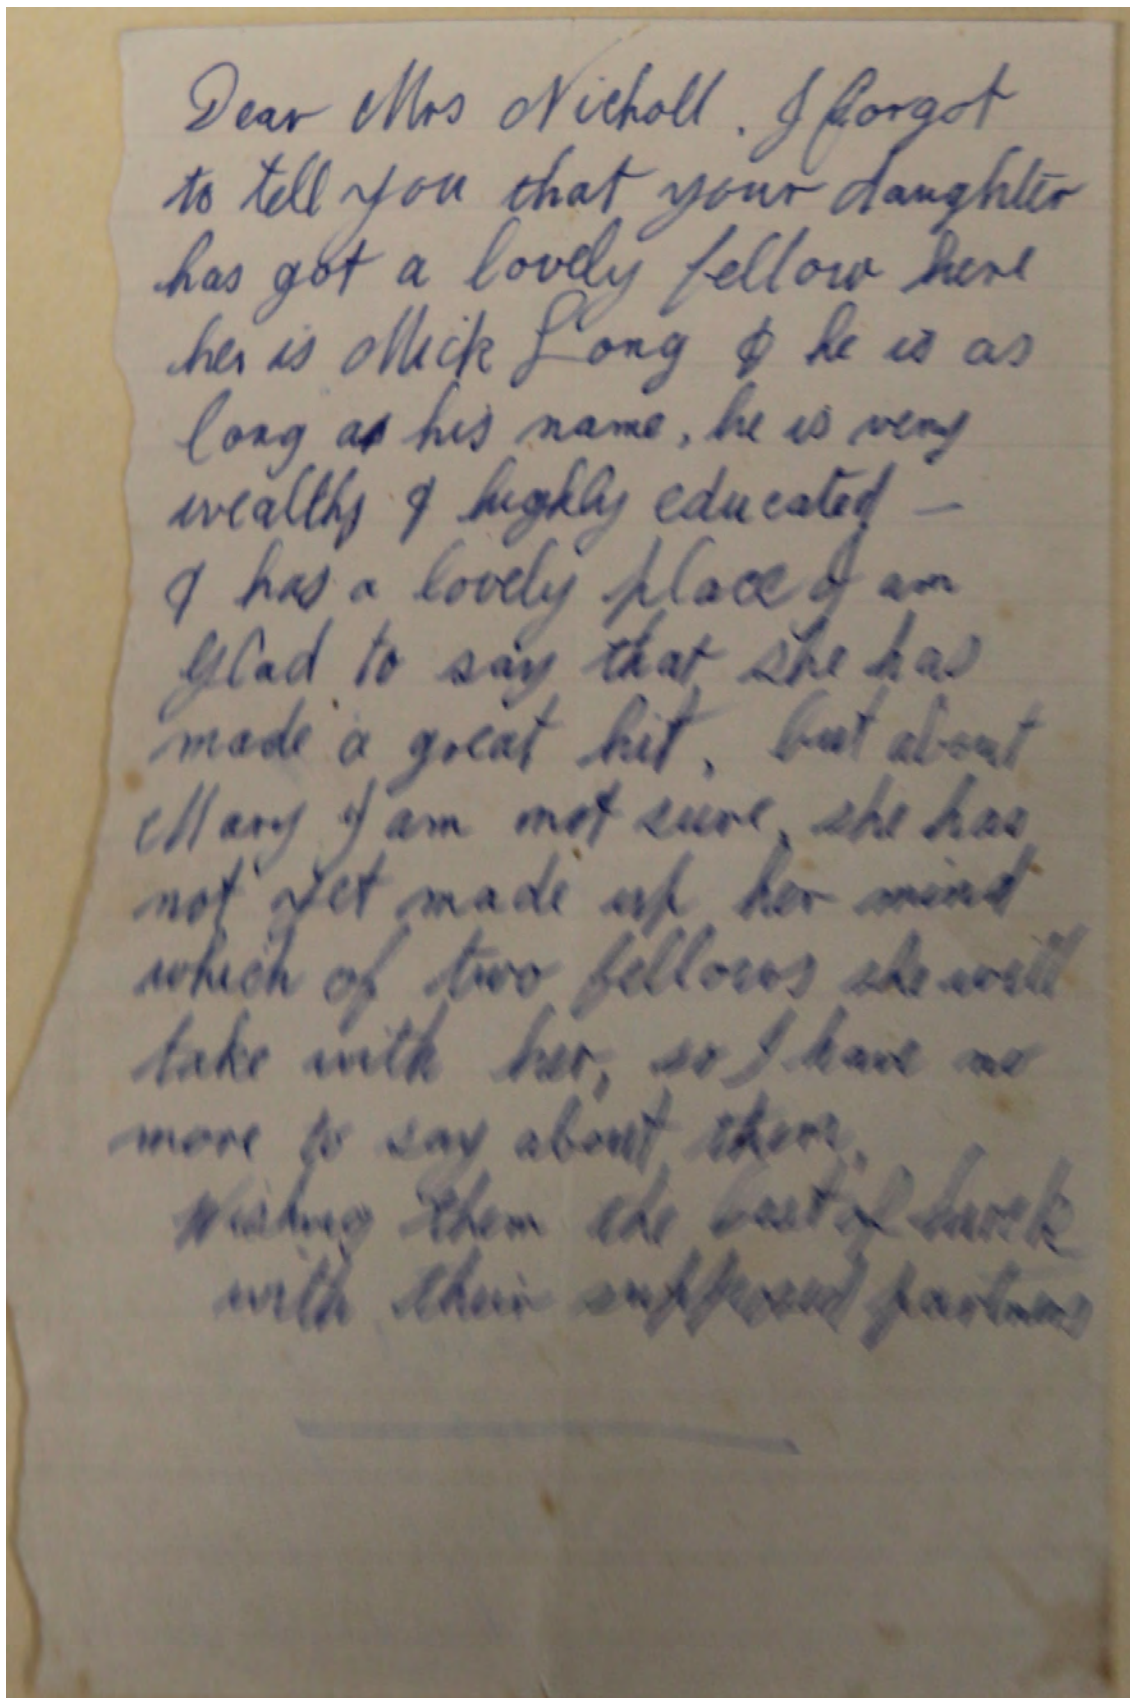 Dear Mrs Nicholl. I forgot
to tell you that your daughter
has got a lovely fellow here
her is Mick Long & he is as
long as his name, he is very
wealthy & highly educated —
& has a lovely place I am
glad to say that she has
made a great hit, but about
Mary I am not sure, she has
not yet made up her mind
which of two fellows she will
take with her, so I have no
more to say about them.
Wishing them the best of luck
with their supposed partners